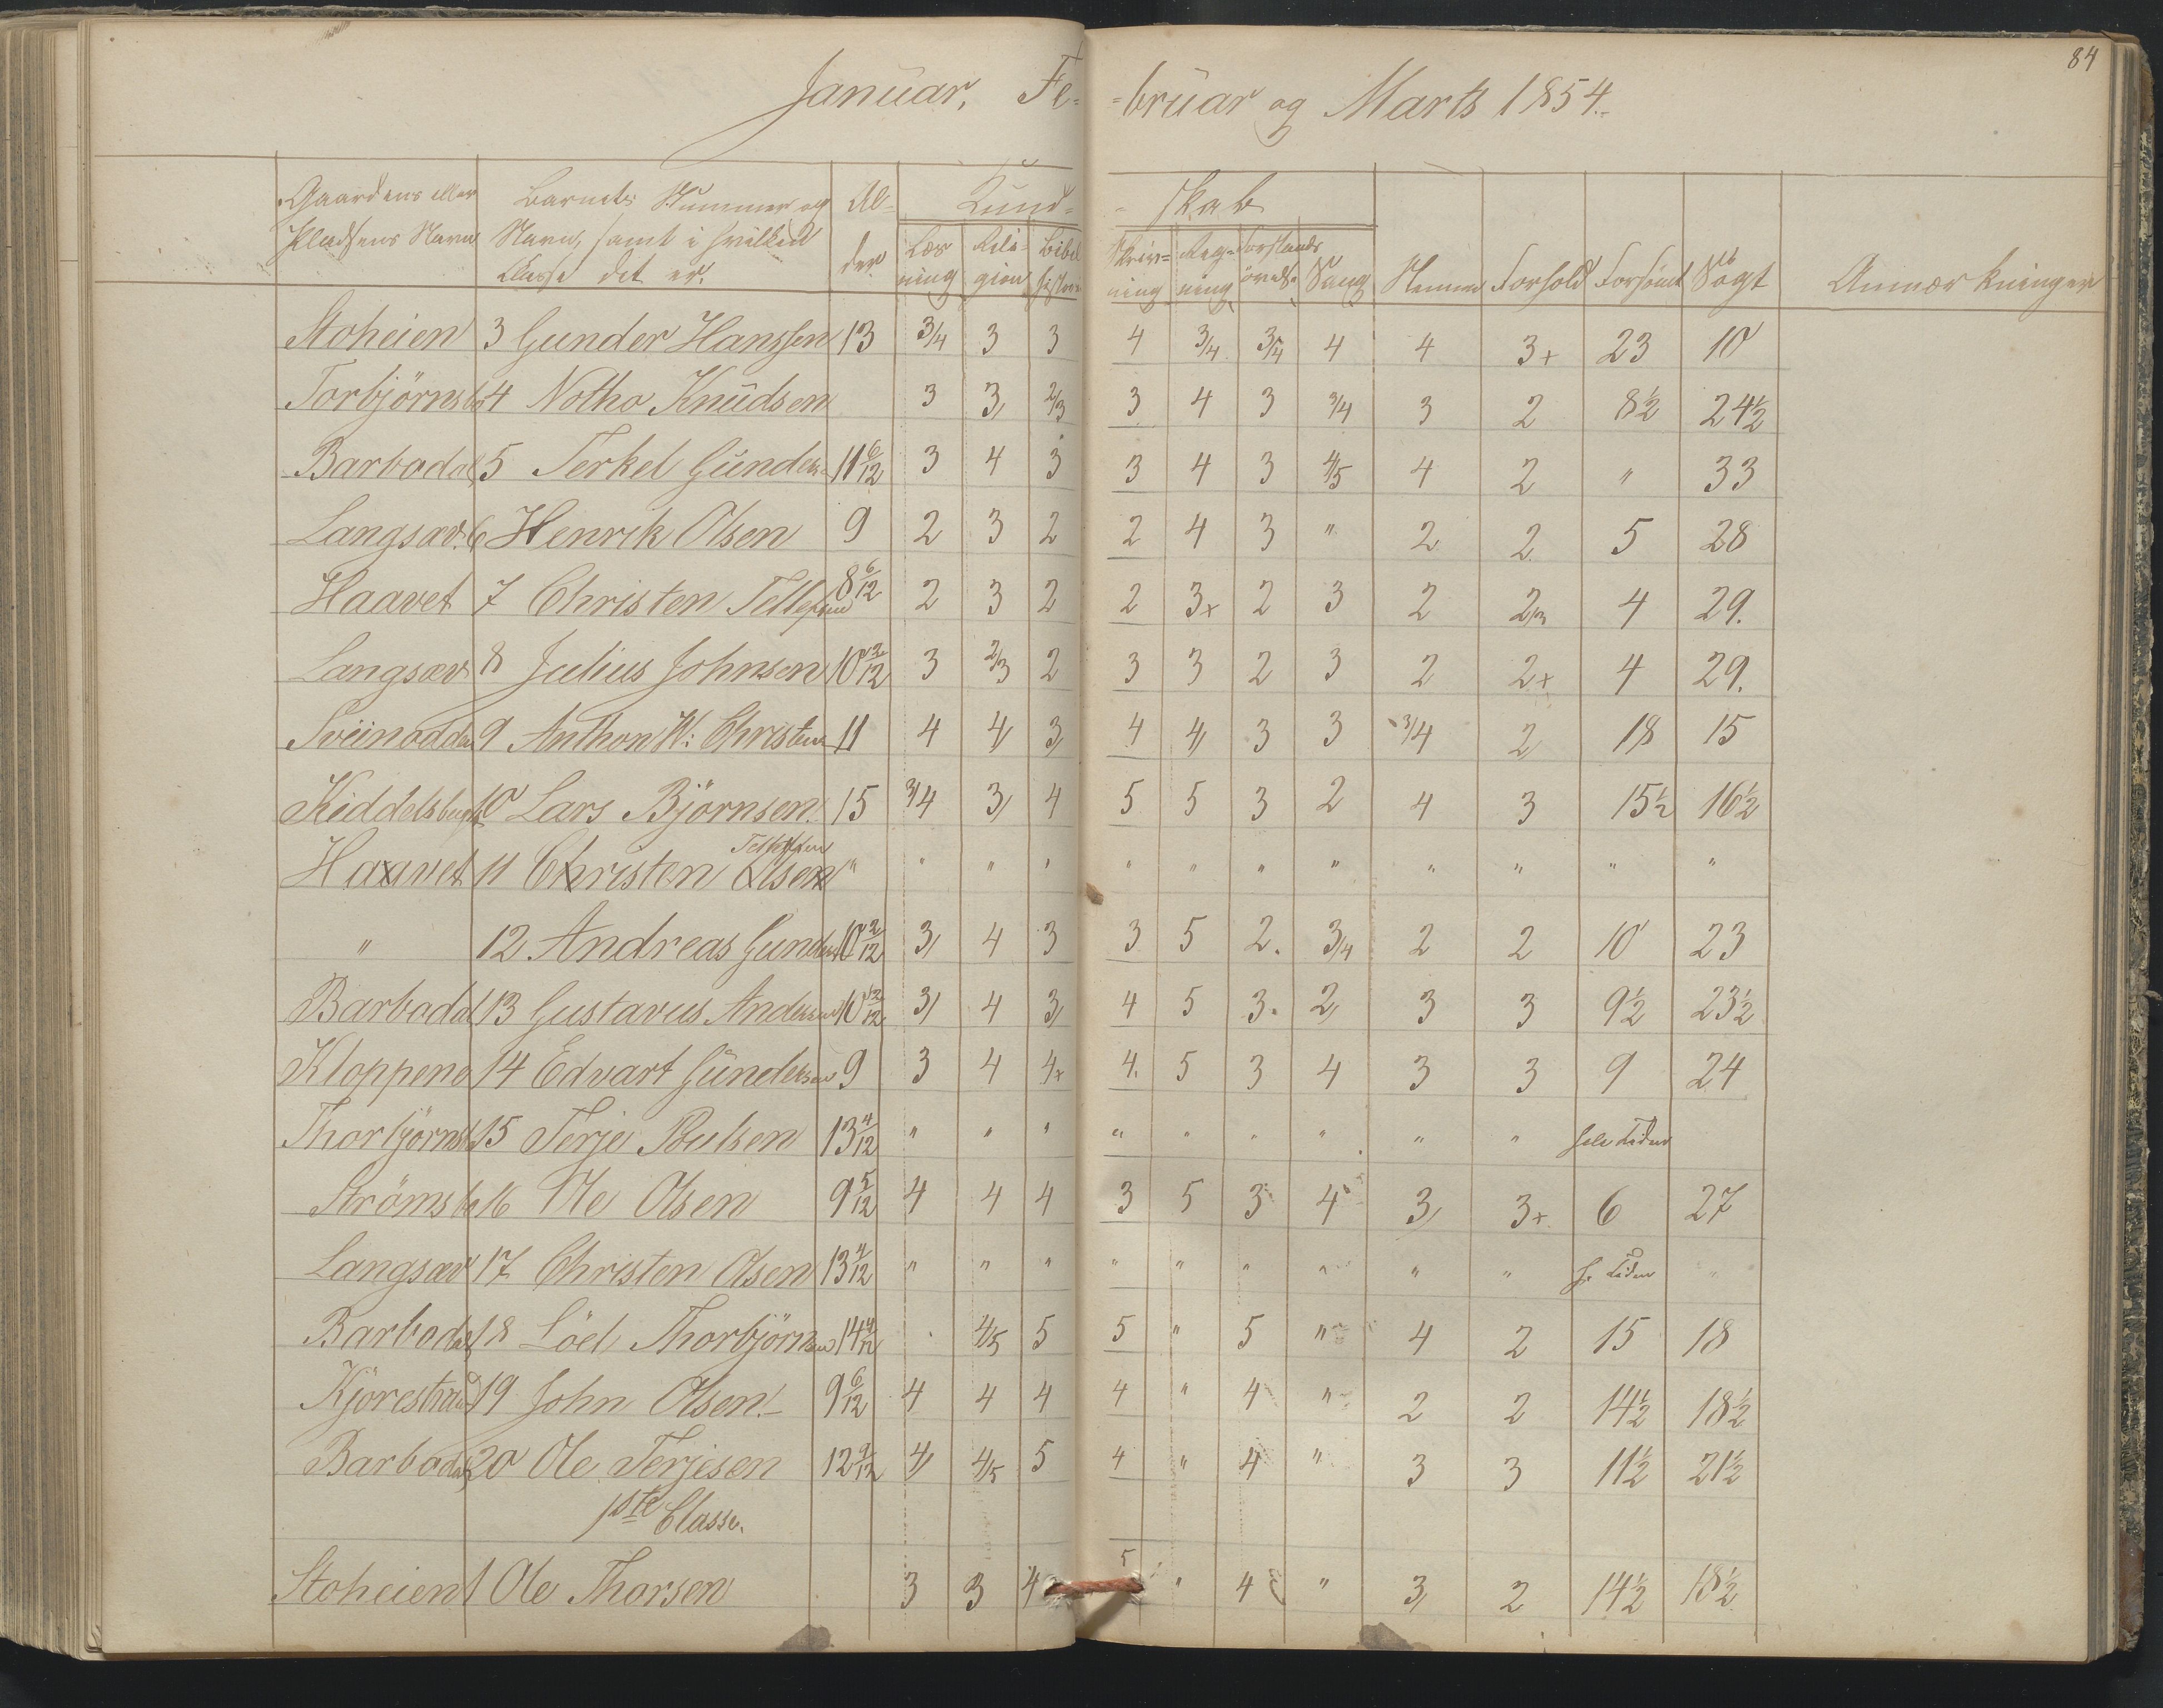 84
Januar, Fe- =bruar og Marts 1854.
Gaardens eller Barnets Nummer og Al- Kund- - skab
Pladsens Navn Navn, samt i hvilken der Læs Reli- Bibel Skriv= Reg= Forstands
Classe det er. ning gion histori ning ning övelse Sang Nemme Forhold Forsömt Sögt Anmærkninger
Stoheien 3 Gunder Hanssen 13 3/4 3 3 4 3/4 3/4 4 4 3+ 23 10
Torbjörnsbo 4 Notho Knudsen 3 3, 2/3 3 4 3 3/4 3 2 8½ 24½
Barbodal 5 Terkel Gunders- 11 6/12 3 4 3 3 4 3 4/5 4 2 " 33
Langsæv. 6 Henrik Olsen 9 2 3 2 2 4 3 " 2 2 5 28
Haavet 7 Christen Tellefsen 8 6/12 2 3 2 2 3+ 2 3 2 2/3 4 29.
Langsæv 8 Julius Johnsen 10 2/12 3 2/3 2 3 3 2 3 2 2+ 4 29.
Sveinodden 9 Anthon W: Christens 11 4 4, 3, 4 4, 3 3 3/4 2 18 15
Kiddelsbugt 10 Lars Björnsen. 15 3/4 3, 4 5 5 3 2 4 3 15½ 16½
Tellefsen
Haavet 11 Christen Olsen " " " " " " " " " " " "
" 12 Andreas Gunders 10 2/12 3, 4 3 3 5 2. 3/4 2 2 10 23
Barbodal 13 Gustavus Andersen 10 /12 3, 4 3, 4 5 3. 2, 3 3 9½ 23½
Kloppene 14 Edvart Gundersen 9 3 4 4+ 4. 5 3 4 3 3 9 24
Thorbjörnsb 15 Terje Poulsen 13 4/12 " " " " " " " " " hele Tiden
Strömsbo 16 Ole Olsen 9 5/12 4 4 4 3 5 3 4 3, 3+ 6 27
Langsæv 17 Christen Olsen 13 4/12 " " " " " " " " " h. Tiden "
Barbodal 18 Löel Thorbjörnsen 14 /12 . 4/5 5 5 " 5 " 4 2 15 18
Kjörestrand 19 John Olsen.- 9 6/12 4 4 4 4 " 4 " 2 2 14½ 18½
Barbodal 20 Ole Terjesen 12 9/12 4, 4/5 5 4 " 4 " 3 3 11½ 21½
1ste Classe.
Stoheien 1 Ole Thorsen 3 3 4 5 " 4 " 3, 2 14½ 18½